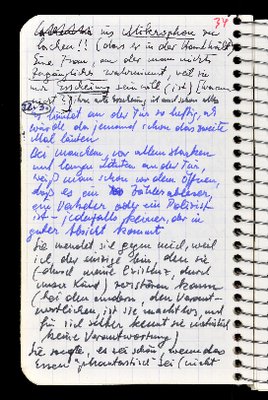 34
ins Mikrophon zu
lachen!! (dass er in der Hand hält)
Eine Frau, an der man nichts
Zugängliches wahrnimmt, weil sie
nur Erscheinung sein will (ist)
läutet an der Tür so heftig, als
würde da jemand schon das zweite
Mal läuten
Bei manchen, vor allem starken
und langen Läuten an der Tür,
weiß man schon vor dem Öffnen,
daß es ein Zählerableser,
ein Vertreter oder ein Polizist
ist – jedenfalls keiner, der in
guter Absicht kommt
Sie wendet sich gegen mich, weil
ich der einzige bin, den sie
(durch meine Existenz, durch
unser Kind) zerstören kann
(bei den andern, den Verant-
wortlichen, ist sie machtlos, und
für sich selber kennt sie natürlich
keine Verantwortung)
Sie sagte, es sei schön, wenn das
Essen "phantastisch" sei (nicht